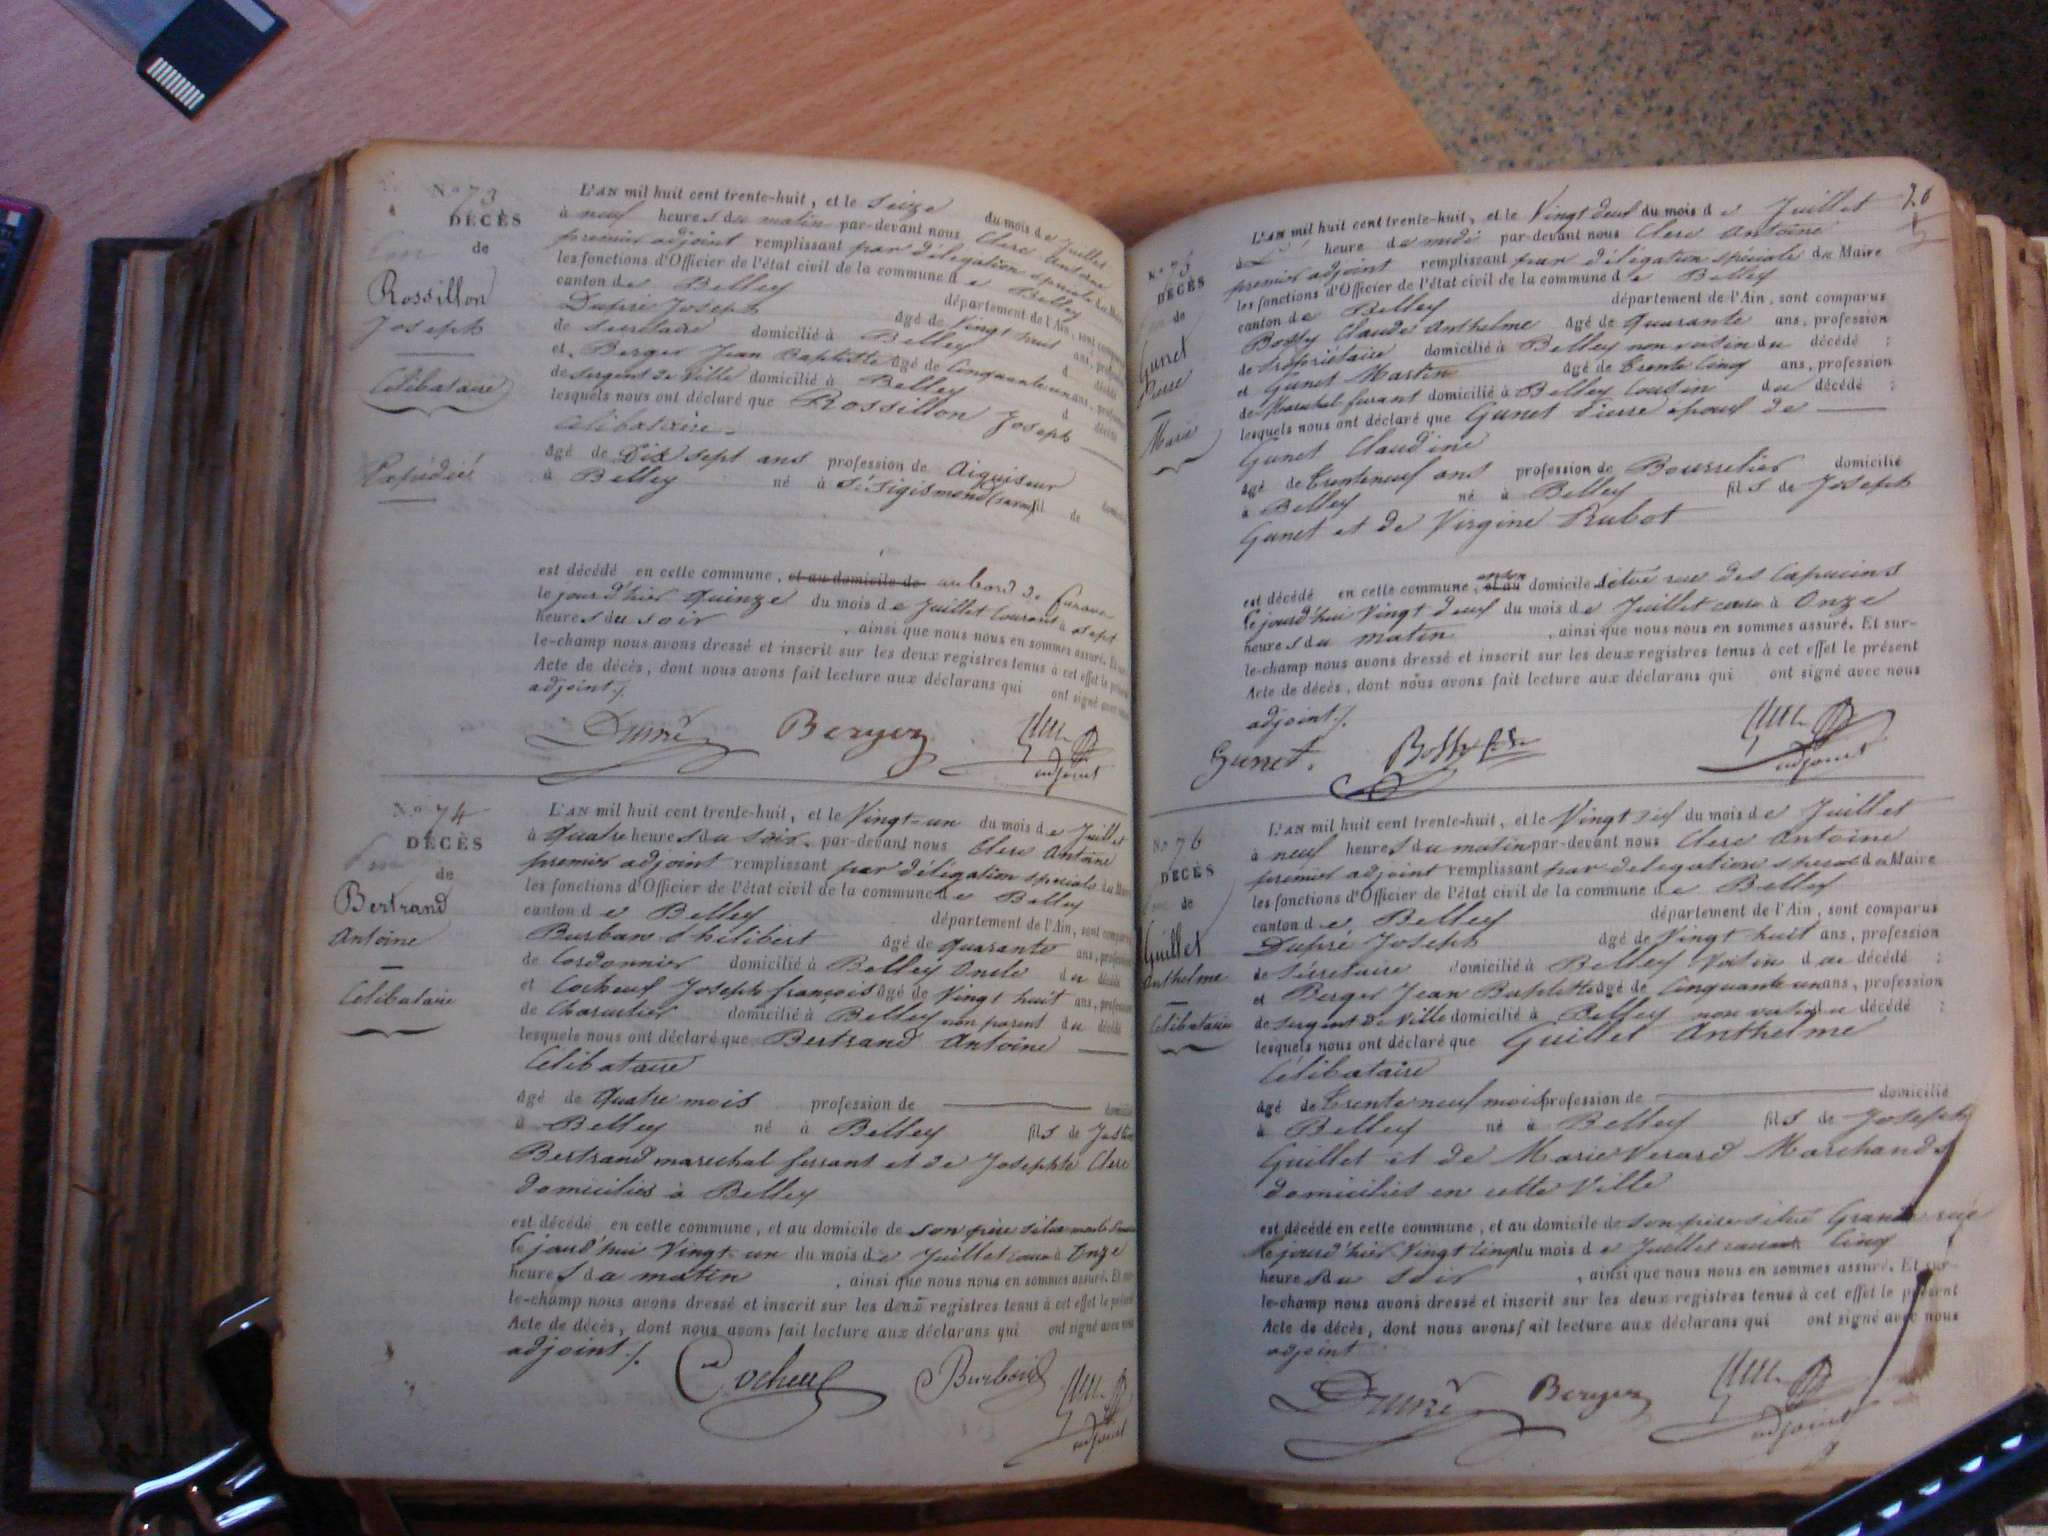 No 73
DÉCÈS
de
Rossillon
Joseph
Célibataire
Expédié
L'AN mil huit cent trente-huit, et le seize du mois de Juillet
à neuf heures du matin par-devant nous Clerc Antoine
premier adjoint remplissant par délégation speciale du Maire
les fonctions d'Officier de l'état civil de la commune de Belley
canton de Belley département de l'Ain, sont comparus
Dupré Joseph âgé de Vingt huit ans, profession
de Sécretaire domicilié à Belley d décédé
et Berger Jean Baptiste âgé de Cinquante un ans, profession
de sergent de Ville domicilié à Belley d décédé
lesquels nous ont déclaré que Rossillon Joseph
Célibataire
âgé de Dix sept ans profession de Aiguiseur domicilié
à Belley né à St Sigismond fil de
est décédé en cette commune, et au domicile de au bord de furans
le jourd'hier quinze du mois de Juillet courant à sept
heures du soir, ainsi que nous nous en sommes assuré. Et sur-
le-champ nous avons dressé et inscrit sur les deux registres tenus à cet effet le présent
Acte de décès, dont nous avons fait lecture aux déclarans qui ont signé avec nous
adjoint ./.
Dupré Berger Clerc adjoint
No 74
DÉCÈS
de
Bertrand
Antoine
Célibataire
L'AN mil huit cent trente-huit, et le Vingt-un du mois de Juillet
à quatre heures du soir par-devant nous Clerc Antoine
premier adjoint remplissant par délégation speciale du Maire
les fonctions d'Officier de l'état civil de la commune de Belley
canton de Belley département de l'Ain, sont comparus
Burban Philibert âgé de quarante ans, profession
de Cordonnier domicilié à Belley Oncle du décédé
et Cocheuf Joseph françois âgé de Vingt huit ans, profession
de Charcutier domicilié à Belley non parent du décédé
lesquels nous ont déclaré que Bertrand Antoine
Célibataire
âgé de quatre mois profession de domicilié
à Belley né à Belley fils de
Bertrand marechal ferrant et de Josephte Clerc
domiciliés à Belley
est décédé en cette commune, et au domicile de son père situé
le jourd'hui Vingt-un du mois de Juillet cour à Onze
heures du matin, ainsi que nous nous en sommes assuré. Et sur-
le-champ nous avons dressé et inscrit sur les deux registres tenus à cet effet le présent
Acte de décès, dont nous avons fait lecture aux déclarans qui ont signé avec nous
adjoint ./.
Cocheuf Burban Clerc adjoint
20
No 75
DÉCÈS
de
Gunet
Pierre
Marié
L'AN mil huit cent trente-huit, et le Vingt deux du mois de Juillet
à heure de midi par-devant nous Clerc Antoine
premier adjoint remplissant par délégation spéciale du Maire
les fonctions d'Officier de l'état civil de la commune de Belley
canton de Belley département de l'Ain, sont comparus
Bossy Claude Anthelme âgé de quarante ans, profession
de Propriétaire domicilié à Belley non voisin du décédé :
et Gunet Martin âgé de trente cinq ans, profession
de Marechal ferrant domicilié à Belley Cousin du décédé :
lesquels nous ont déclaré que Gunet Pierre époux de
Gunet Claudine
âgé de trente neuf ans profession de Bourrelier domicilié
à Belley né à Belley fils de Joseph
Gunet et de Virgine Rubot
est décédé en cette commune, et au en son domicile situé rue des Capucins
le jourd'hui Vingt deux du mois de Juillet cour à Onze
heures du matin, ainsi que nous nous en sommes assuré. Et sur-
le-champ nous avons dressé et inscrit sur les deux registres tenus à cet effet le présent
Acte de décès, dont nous avons fait lecture aux déclarans qui ont signé avec nous
adjoint ./.
Gunet. Clerc adjoint
No 76
DÉCÈS
de
Guillet
Anthelme
Célibataire
L'AN mil huit cent trente-huit, et le Vingt six du mois de Juillet
à neuf heures du matin par-devant nous Clerc Antoine
premier adjoint remplissant par délegation speciale du Maire
les fonctions d'Officier de l'état civil de la commune de Belley
canton de Belley département de l'Ain, sont comparus
Dupré Joseph âgé de Vingt huit ans, profession
de Sécretaire domicilié à Belley Voisin du décédé :
et Berger Jean Baptiste âgé de Cinquante un ans, profession
de sergent de Ville domicilié à Belley non voisin du décédé :
lesquels nous ont déclaré que Guillet Anthelme
Célibataire
âgé de trente neuf mois profession de domicilié
à Belley né à Belley fils de Joseph
Guillet et de Marie Verard Marchands
domiciliés en cette Ville
est décédé en cette commune, et au domicile de son père situé Grande rue
le jourd'hier Vingt cinq du mois de Juillet courant Cinq
heures du soir, ainsi que nous nous en sommes assuré. Et sur-
le-champ nous avons dressé et inscrit sur les deux registres tenus à cet effet le présent
Acte de décès, dont nous avons fait lecture aux déclarans qui ont signé avec nous
adjoint
Dupré Berger Clerc adjoint